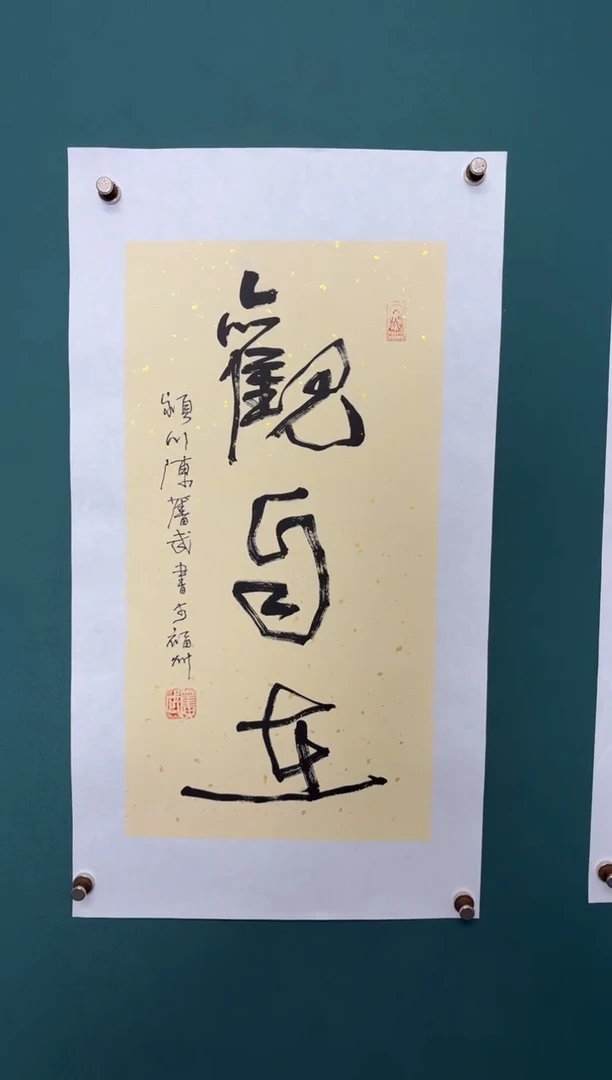 觀自在
潁川陳舊武書於福州